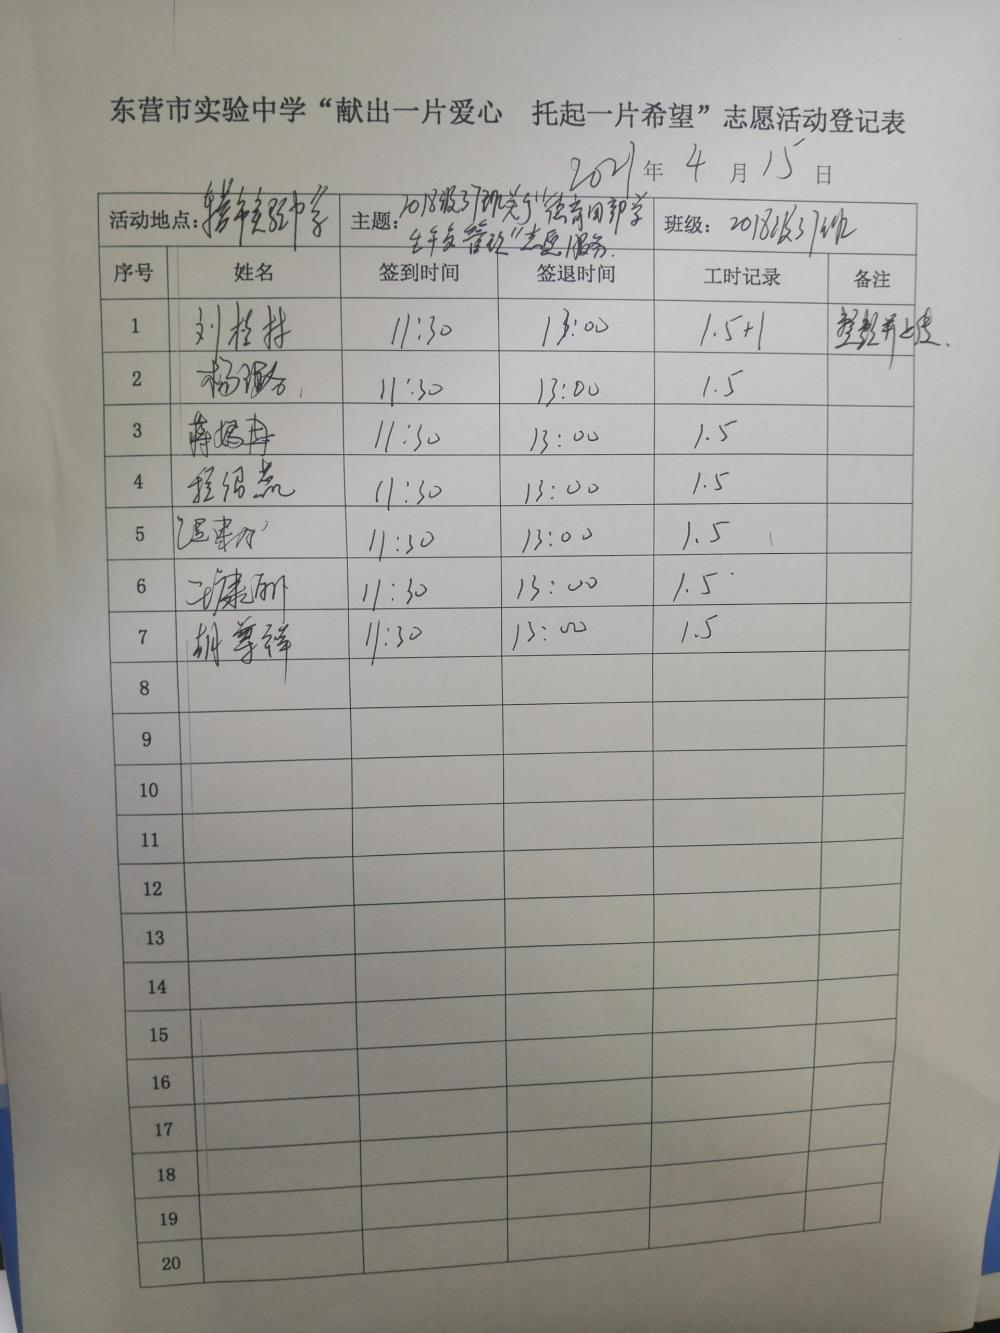 东营市实验中学“献出一片爱心 托起一片希望”志愿活动登记表
2021年4月15日
活动地点: 东营市实验中学 主题: 2018级37班关于“德育团部学 班级: 2018级37班
生午餐管理”志愿服务.
序号 姓名 签到时间 签退时间 工时记录 备注
1 刘桂林 11:30 13:00 1.5+1 整理并上传.
2 11:30 13:00 1.5
3 11:30 13:00 1.5
4 11:30 13:00 1.5
5 11:30 13:00 1.5
6 王康丽 11:30 13:00 1.5
7 胡尊祥 11:30 13:00 1.5
8
9
10
11
12
13
14
15
16
17
18
19
20